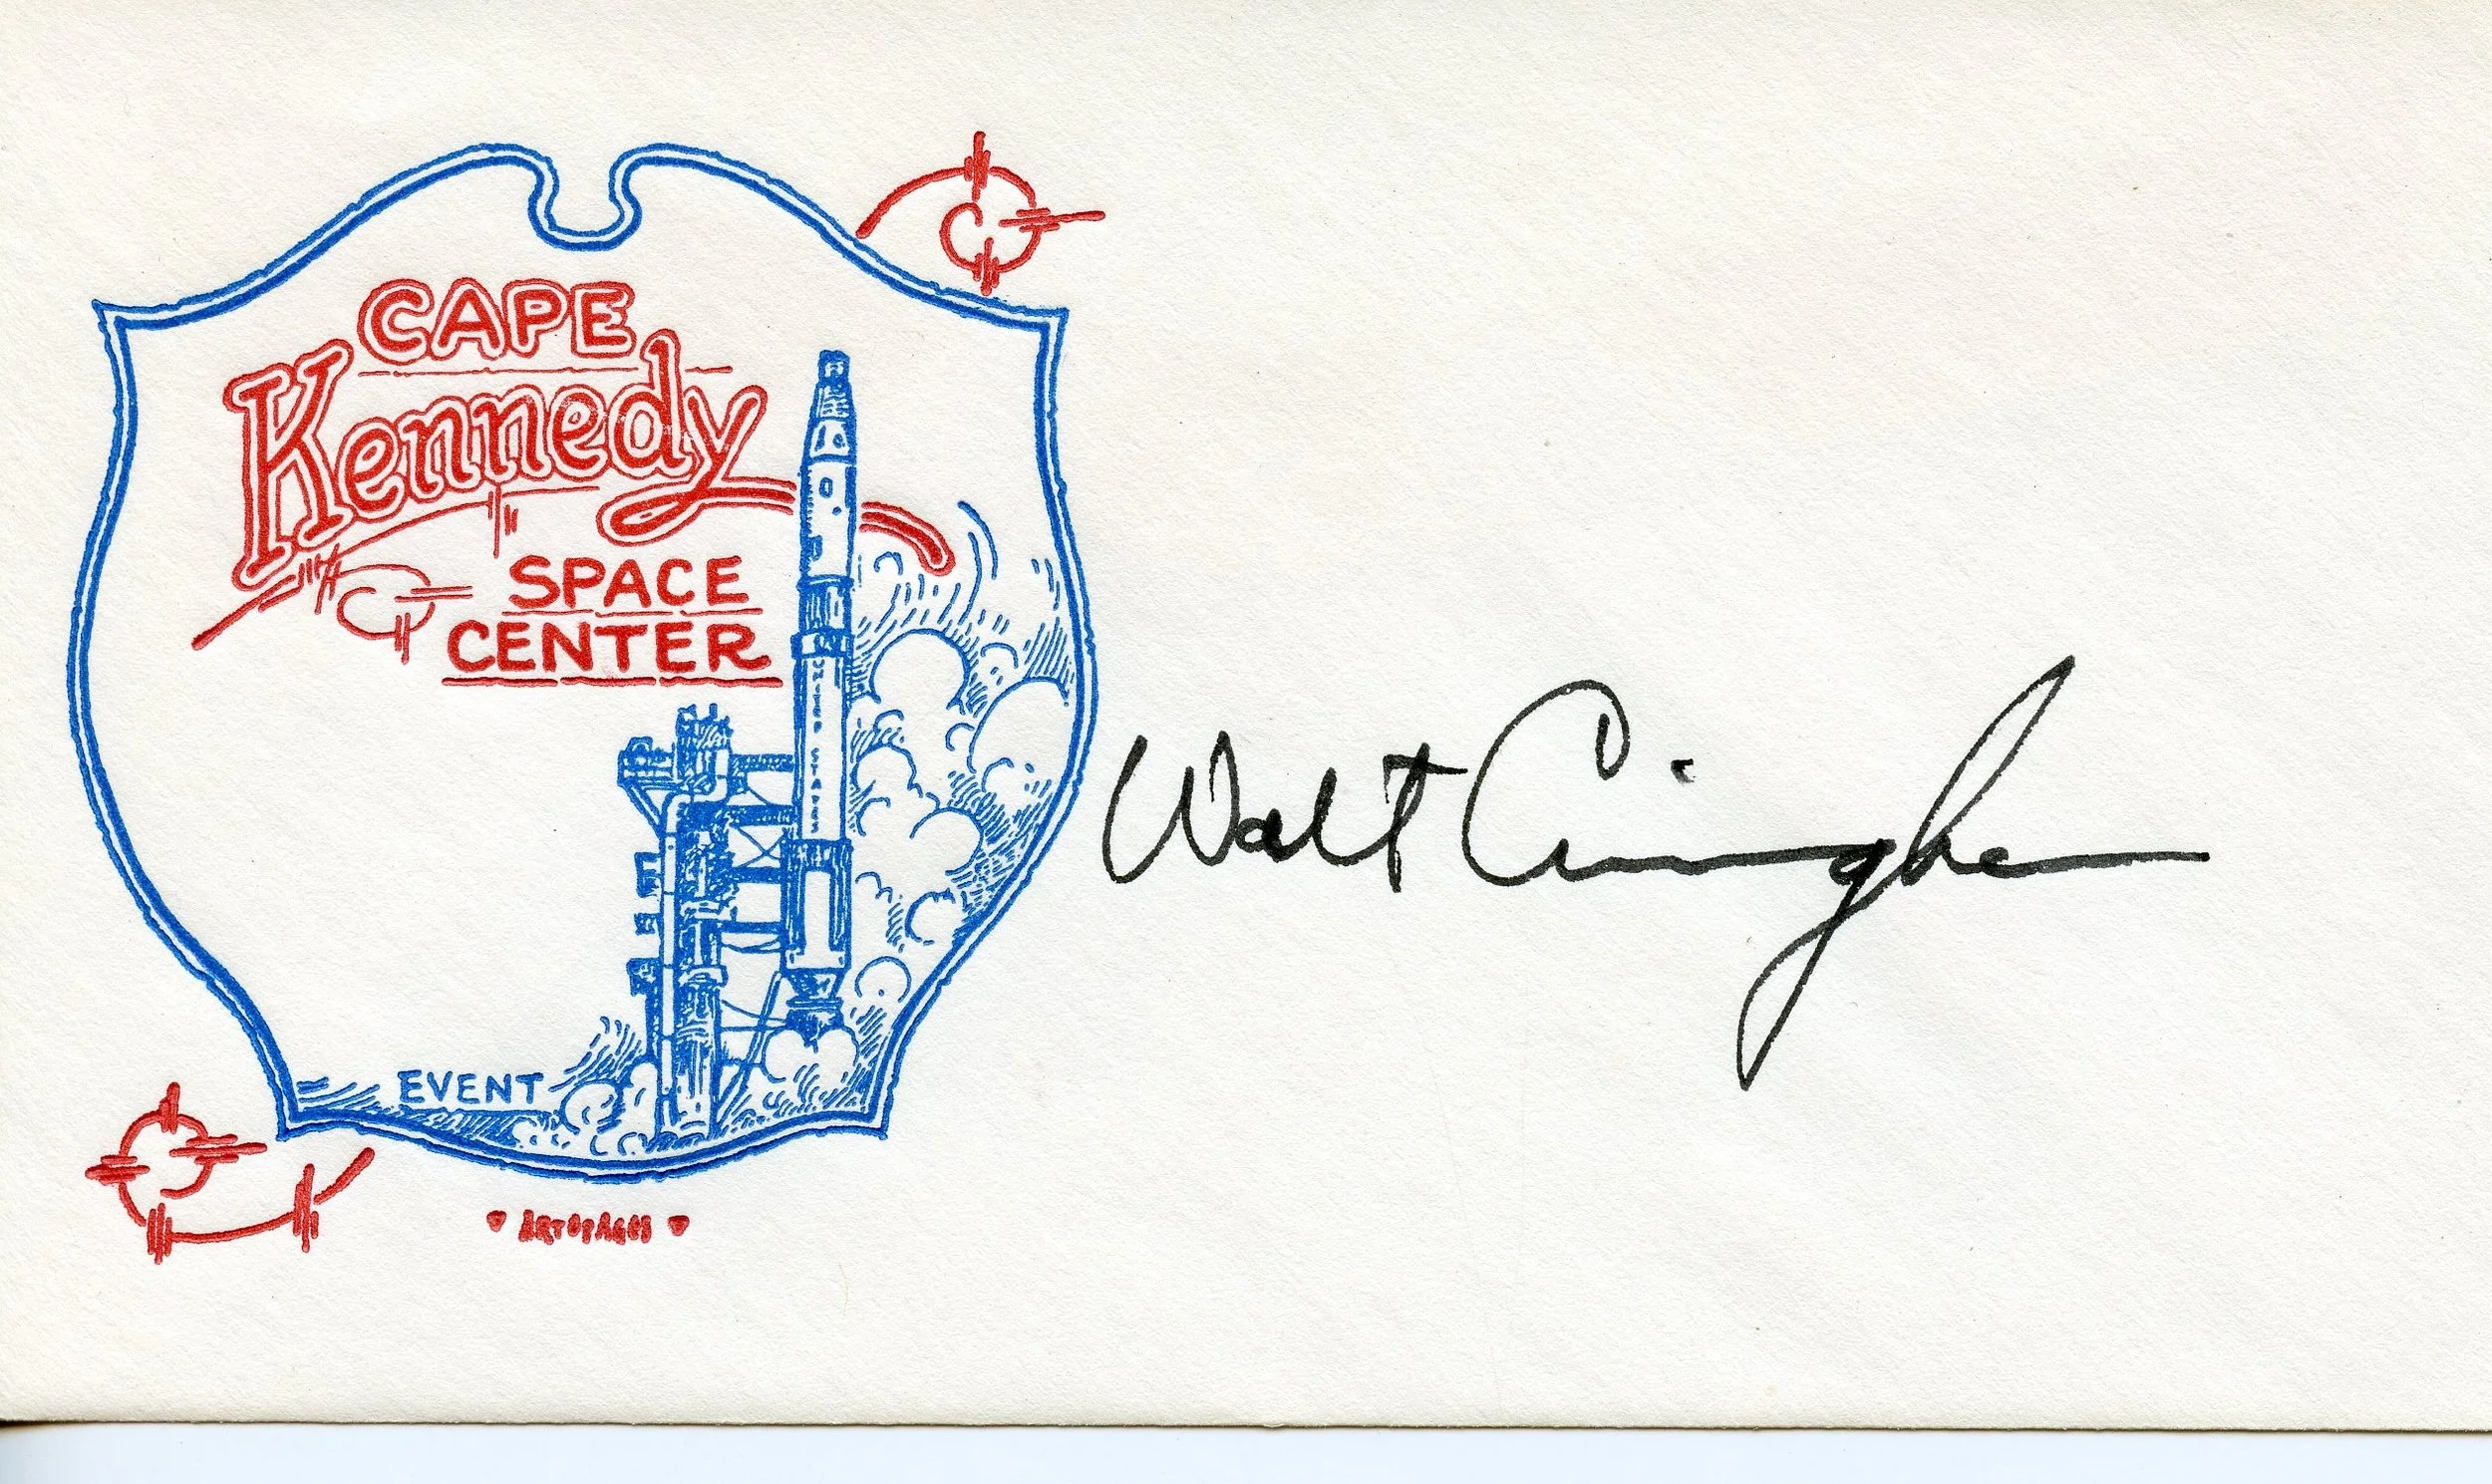 CAPE
Kennedy
SPACE
CENTER
UNITED STATES
EVENT
ARTOPAGES
Walt Cunningham